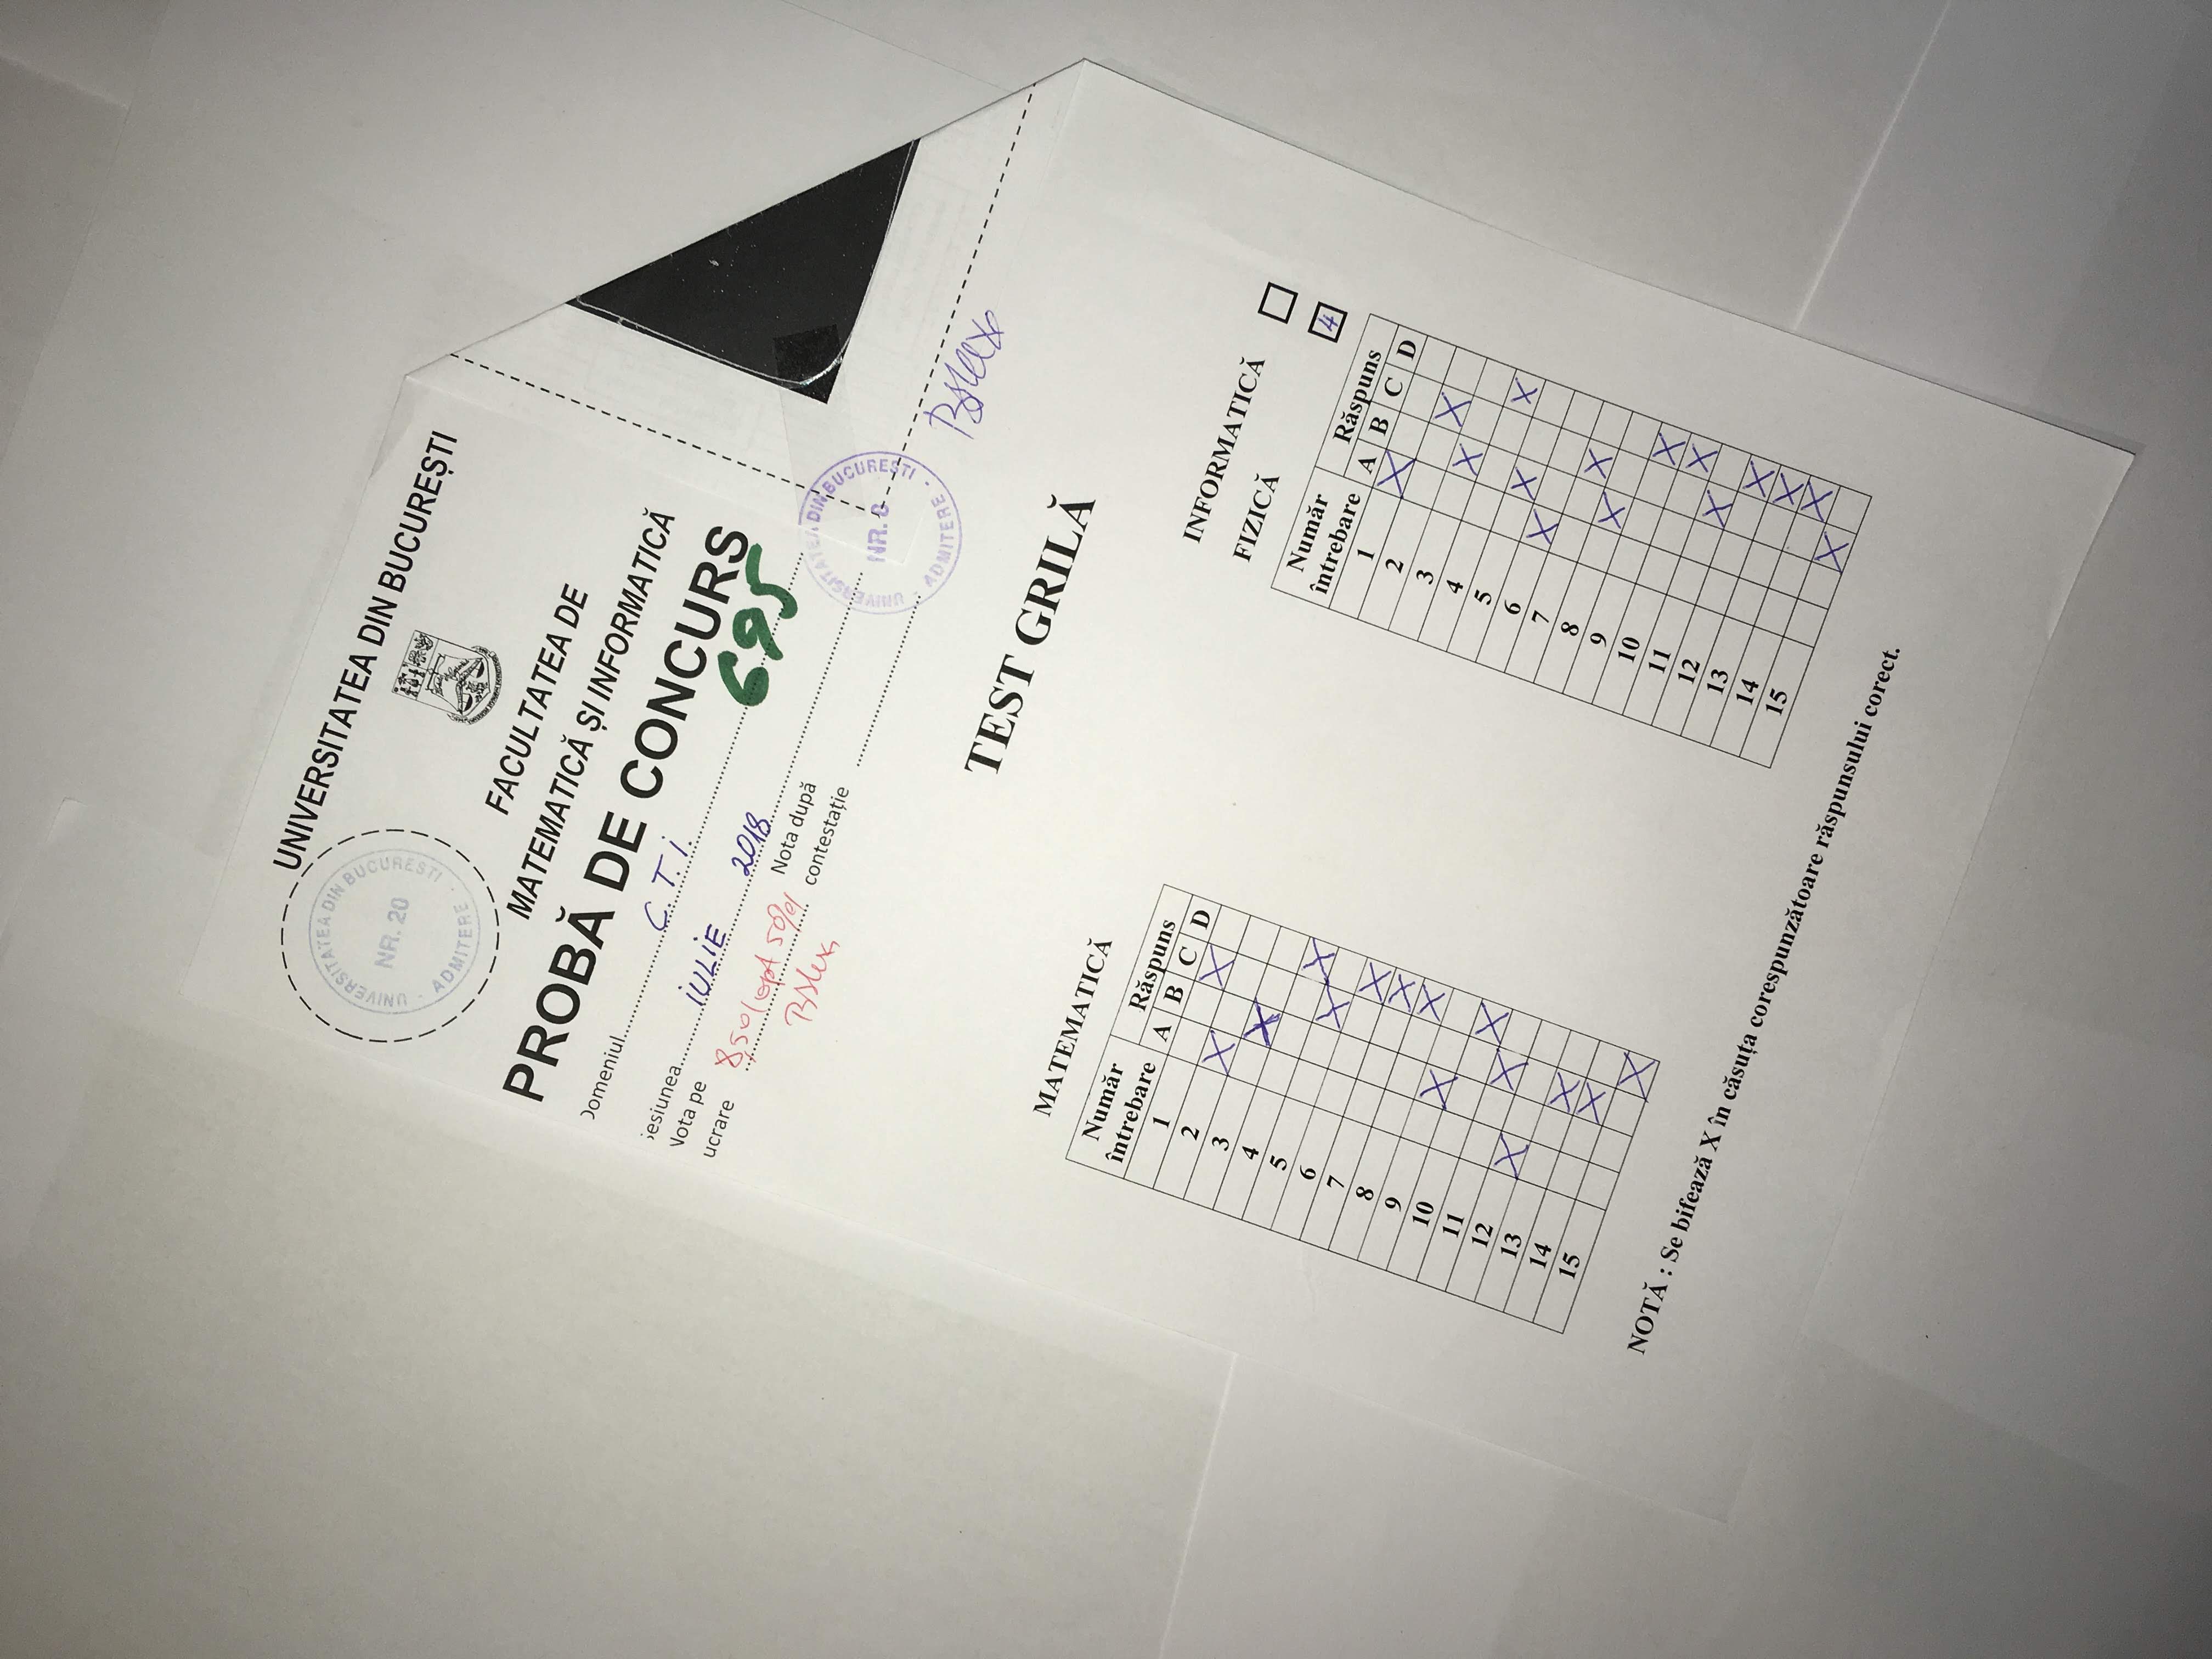 UNIVERSITATEA DIN BUCUREȘTI
UNIVERSITATEA DIN BUCUREȘTI
NR. 20
ADMITERE
FACULTATEA DE
MATEMATICĂ ȘI INFORMATICĂ
PROBĂ DE CONCURS
Domeniul C.T.I.
695
Sesiunea IULIE 2018
Nota pe
lucrare 8,50 (opt 50%)
Nota după
contestație
UNIVERSITATEA DIN BUCUREȘTI
NR. 8
ADMITERE
TEST GRILĂ
MATEMATICĂ
Număr
întrebare
Răspuns
A B C D
1 X
2 X
3 X
4 X
5 X
6 X
7 X
8 X
9 X
10 X
11 X
12 X
13 X
14 X
15 X
INFORMATICĂ
FIZICĂ 4
Număr
întrebare
Răspuns
A B C D
1 X
2 X
3 X
4 X
5 X
6 X
7 X
8 X
9 X
10 X
11 X
12 X
13 X
14 X
15 X
NOTĂ : Se bifează X în căsuța corespunzătoare răspunsului corect.